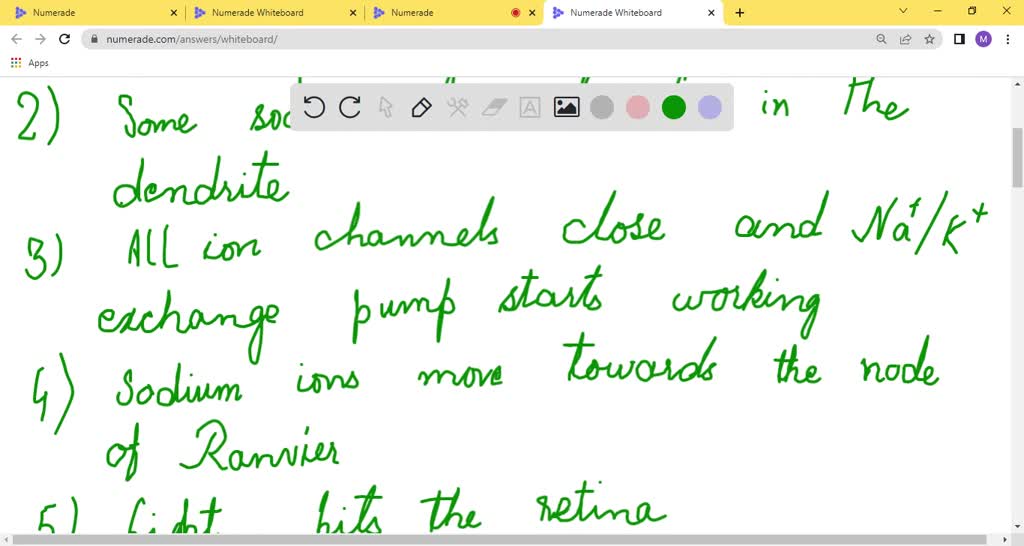 Numerade
Numerade Whiteboard
Numerade
Numerade Whiteboard
numerade.com/answers/whiteboard/
M
Apps
A
2) Some in the
dendrite
3) All ion channels close and Na+/K+
exchange pump starts working
4) Sodium ions move towards the node
of Ranvier
5) Light hits the retina